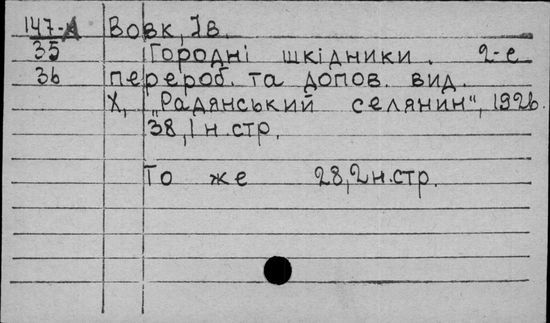 147-А Вовк, Ів.
35 Городні шкідники. 2-е
36 перероб. та допов. вид.
Х, „Радянський селянин", 1926.
38, 1 н. стр.
То же 28, 2 н. стр.